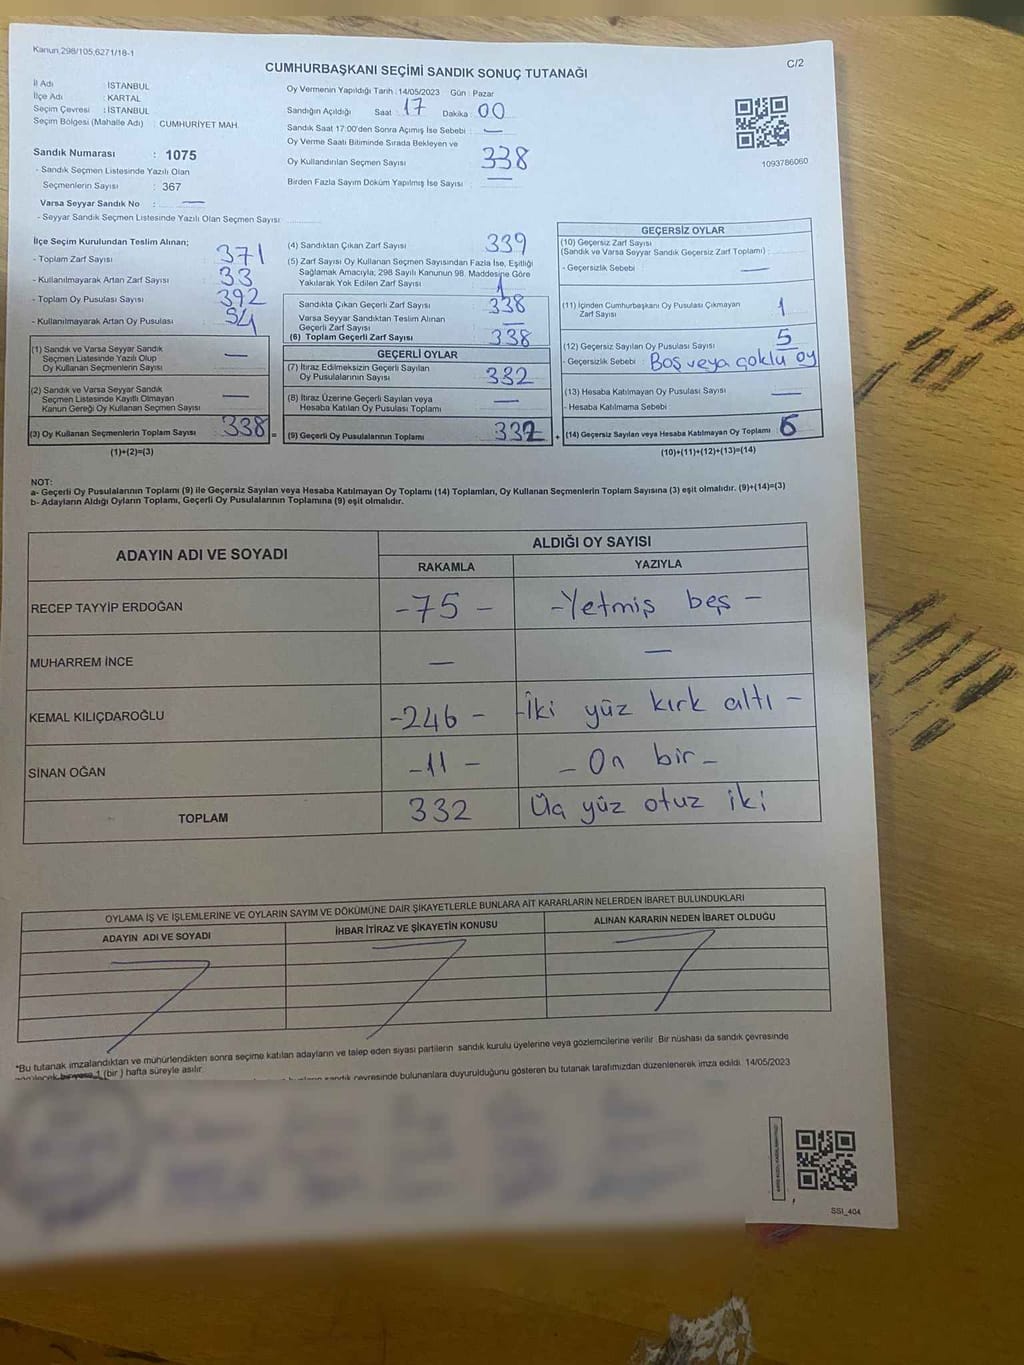 Kanun 298/105,6271/18-1
C/2
CUMHURBAŞKANI SEÇİMİ SANDIK SONUÇ TUTANAĞI
İl Adı : İSTANBUL
İlçe Adı : KARTAL
Seçim Çevresi : İSTANBUL
Seçim Bölgesi (Mahalle Adı) : CUMHURİYET MAH.
Sandık Numarası : 1075
- Sandık Seçmen Listesinde Yazılı Olan
Seçmenlerin Sayısı : 367
Varsa Seyyar Sandık No : —
- Seyyar Sandık Seçmen Listesinde Yazılı Olan Seçmen Sayısı
Oy Vermenin Yapıldığı Tarih : 14/05/2023 Gün : Pazar
Sandığın Açıldığı Saat 17 Dakika 00
Sandık Saat 17:00'den Sonra Açımış İse Sebebi : —
Oy Verme Saati Bitiminde Sırada Bekleyen ve
Oy Kullandırılan Seçmen Sayısı 338
Birden Fazla Sayım Döküm Yapılmış İse Sayısı —
1093786060
İlçe Seçim Kurulundan Teslim Alınan;
- Toplam Zarf Sayısı 371
- Kullanılmayarak Artan Zarf Sayısı 33
- Toplam Oy Pusulası Sayısı 392
- Kullanılmayarak Artan Oy Pusulası 54
(1) Sandık ve Varsa Seyyar Sandık
Seçmen Listesinde Yazılı Olup
Oy Kullanan Seçmenlerin Sayısı —
(2) Sandık ve Varsa Seyyar Sandık
Seçmen Listesinde Kayıtlı Olmayan
Kanun Gereği Oy Kullanan Seçmen Sayısı —
(3) Oy Kullanan Seçmenlerin Toplam Sayısı 338 =
(1)+(2)=(3)
(4) Sandıktan Çıkan Zarf Sayısı 339
(5) Zarf Sayısı Oy Kullanan Seçmen Sayısından Fazla İse, Eşitliği
Sağlamak Amacıyla; 298 Sayılı Kanunun 98. Maddesine Göre
Yakılarak Yok Edilen Zarf Sayısı 1
Sandıkta Çıkan Geçerli Zarf Sayısı 338
Varsa Seyyar Sandıktan Teslim Alınan
Geçerli Zarf Sayısı —
(6) Toplam Geçerli Zarf Sayısı 338
GEÇERLİ OYLAR
(7) İtiraz Edilmeksizin Geçerli Sayılan
Oy Pusulalarının Sayısı 332
(8) İtiraz Üzerine Geçerli Sayılan veya
Hesaba Katılan Oy Pusulası Toplamı —
(9) Geçerli Oy Pusulalarının Toplamı 332 +
GEÇERSİZ OYLAR
(10) Geçersiz Zarf Sayısı
(Sandık ve Varsa Seyyar Sandık Geçersiz Zarf Toplamı)
- Geçersizlik Sebebi —
(11) İçinden Cumhurbaşkanı Oy Pusulası Çıkmayan
Zarf Sayısı 1
(12) Geçersiz Sayılan Oy Pusulası Sayısı 5
- Geçersizlik Sebebi : Boş veya çoklu oy
(13) Hesaba Katılmayan Oy Pusulası Sayısı —
- Hesaba Katılmama Sebebi
(14) Geçersiz Sayılan veya Hesaba Katılmayan Oy Toplamı 6
(10)+(11)+(12)+(13)=(14)
NOT:
a- Geçerli Oy Pusulalarının Toplamı (9) ile Geçersiz Sayılan veya Hesaba Katılmayan Oy Toplamı (14) Toplamları, Oy Kullanan Seçmenlerin Toplam Sayısına (3) eşit olmalıdır. (9)+(14)=(3)
b- Adayların Aldığı Oyların Toplamı, Geçerli Oy Pusulalarının Toplamına (9) eşit olmalıdır.
ADAYIN ADI VE SOYADI ALDIĞI OY SAYISI
RAKAMLA YAZIYLA
RECEP TAYYİP ERDOĞAN -75- -Yetmiş beş-
MUHARREM İNCE — —
KEMAL KILIÇDAROĞLU -246- -İki yüz kırk altı-
SİNAN OĞAN -11- -On bir-
TOPLAM 332 Üç yüz otuz iki
OYLAMA İŞ VE İŞLEMLERİNE VE OYLARIN SAYIM VE DÖKÜMÜNE DAİR ŞİKAYETLERLE BUNLARA AİT KARARLARIN NELERDEN İBARET BULUNDUKLARI
ADAYIN ADI VE SOYADI İHBAR İTİRAZ VE ŞİKAYETİN KONUSU ALINAN KARARIN NEDEN İBARET OLDUĞU
*Bu tutanak imzalandıktan ve mühürlendikten sonra seçime katılan adayların ve talep eden siyasi partilerin sandık kurulu üyelerine ve gözlemcilerine verilir. Bir nüshası da sandık çevresinde
1 (bir) hafta süreyle asılır.
sandık çevresinde bulunanlara duyurulduğunu gösteren bu tutanak tarafımızdan düzenlenerek imza edildi. 14/05/2023
SSI_404